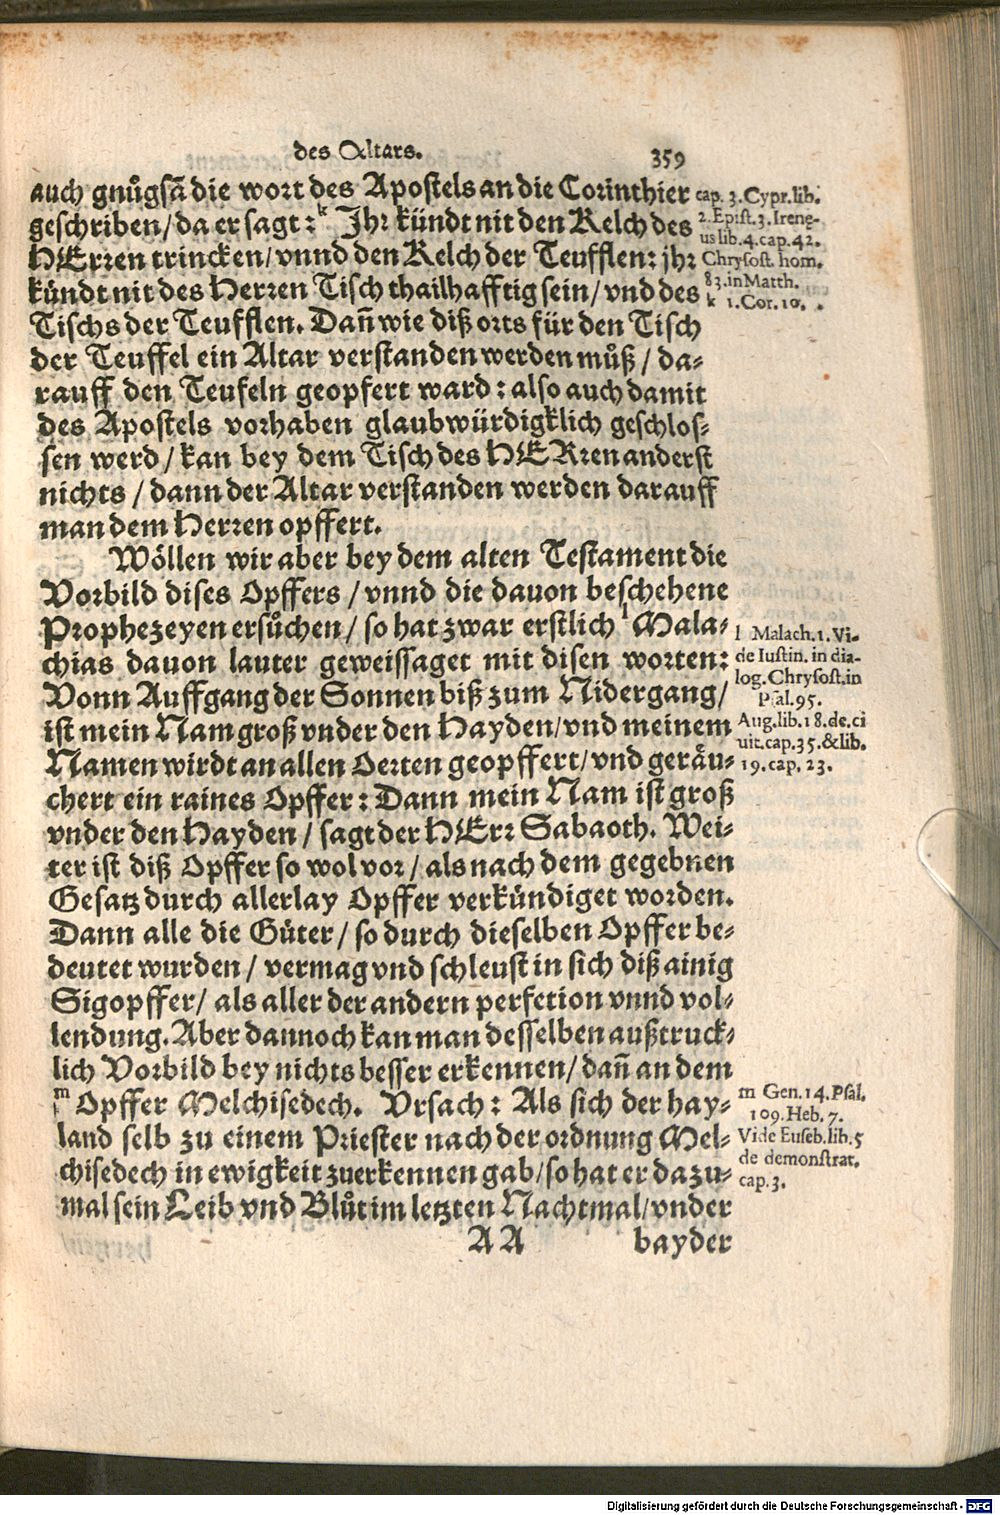 des Altars. 359
auch gnůgsã die wort des Apostels an die Corinthier
geschriben/ da er sagt: k Jhr kündt nit den Kelch des
HErren trincken/ vnnd den Kelch der Teufflen: jhr
kündt nit des Herren Tisch thailhafftig sein/ vnd des
Tischs der Teufflen. Dañ wie diß orts für den Tisch
der Teuffel ein Altar verstanden werden můß/ da-
rauff den Teufeln geopfert ward: also auch damit
des Apostels vorhaben glaubwürdigklich geschlos-
sen werd/ kan bey dem Tisch des HERren anderst
nichts/ dann der Altar verstanden werden darauff
man dem Herren opffert.
cap. 3. Cypr. lib.
2. Epist. 3. Irenę-
us lib. 4. cap. 42.
Chrysost. hom.
83. in Matth.
k 1. Cor. 10.
Wöllen wir aber bey dem alten Testament die
Vorbild dises Opffers/ vnnd die dauon beschehene
Prophezeyen ersůchen/ so hat zwar erstlich l Mala-
chias dauon lauter geweissaget mit disen worten:
Vonn Auffgang der Sonnen biß zum Nidergang/
ist mein Nam groß vnder den Hayden/ vnd meinem
Namen wirdt an allen Oerten geopffert/ vnd geräu-
chert ein raines Opffer: Dann mein Nam ist groß
vnder den Hayden/ sagt der HErr Sabaoth. Wei-
ter ist diß Opffer so wol vor/ als nach dem gegebnen
Gesatz durch allerlay Opffer verkündiget worden.
Dann alle die Güter/ so durch dieselben Opffer be-
deutet wurden/ vermag vnd schleust in sich diß ainig
Sigopffer/ als aller der andern perfetion vnnd vol-
lendung. Aber dannoch kan man desselben außtruck-
lich Vorbild bey nichts besser erkennen/ dañ an dem
m Opffer Melchisedech. Vrsach: Als sich der hay-
land selb zu einem Priester nach der ordnung Mel-
chisedech in ewigkeit zuerkennen gab/ so hat er dazu-
mal sein Leib vnd Blůt im letzten Nachtmal/ vnder
l Malach. 1. Vi-
de Iustin. in dia-
log. Chrysost. in
Psal. 95.
Aug. lib. 18. de. ci
uit. cap. 35. & lib.
19. cap. 23.
m Gen. 14. Psal.
109. Heb. 7.
Vide Euseb. lib. 5
de demonstrat.
cap. 3.
AA bayder
Digitalisierung gefördert durch die Deutsche Forschungsgemeinschaft - DFG